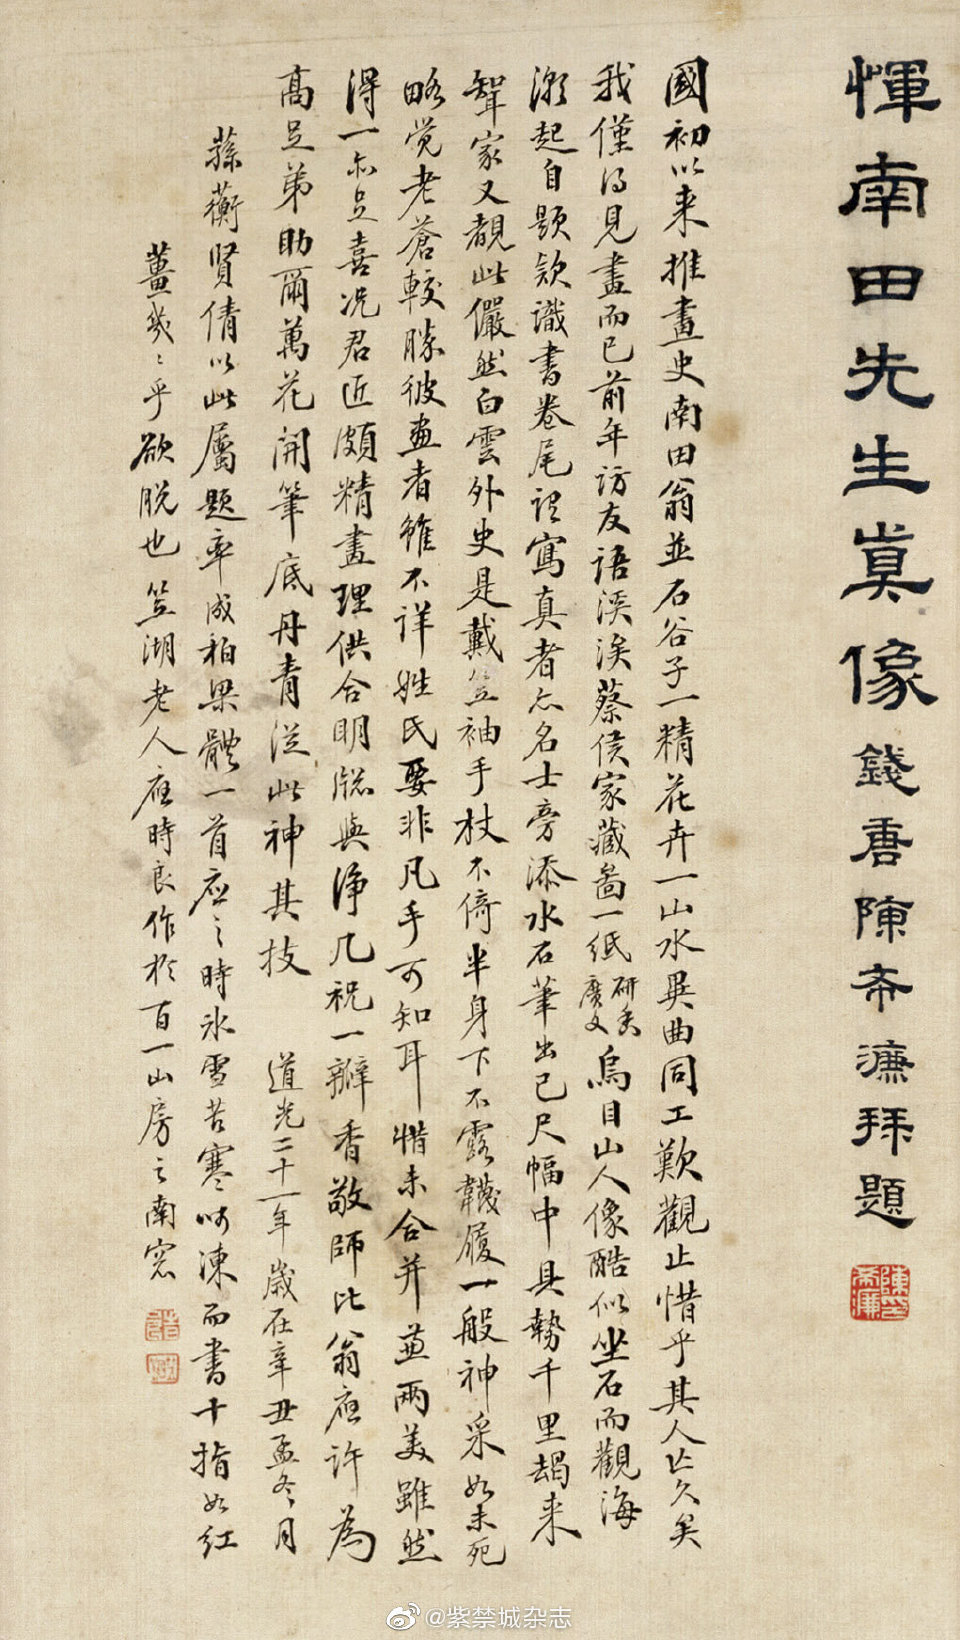 惲南田先生真像 錢唐陳希濂拜題
陳希濂印
國初以来推畫史南田翁並石谷子一精花卉一山水異曲同工歎觀止惜乎其人亡久矣
我僅得見畫而已前年訪友語溪涘蔡侯家藏畵一紙研香廣文烏目山人像酷似坐石而觀海
瀨起自題欵識書卷尾證寫真者亦名士旁添水石筆出已尺幅中具勢千里朅来
聟家又覩此儼然白雲外史是戴笠袖手杖不倚半身下不露韈履一般神采如未死
略覚老蒼較勝彼畫者雖不详姓氏要非凡手可知耳惜未合并兼兩美雖然
得一亦足喜况君近頗精畫理供合明牕與浄几祝一瓣香敬師比翁應许為
高足弟助爾萬花開筆底丹青從此神其技 道光二十一年歲在辛丑孟冬月
蓀蘅賢倩以此屬題率成柏梁體一首應之時冰雪苦寒呵凍而書十指如紅
薑幾〻乎欲脱也笠湖老人應時良作於百一山房之南窓